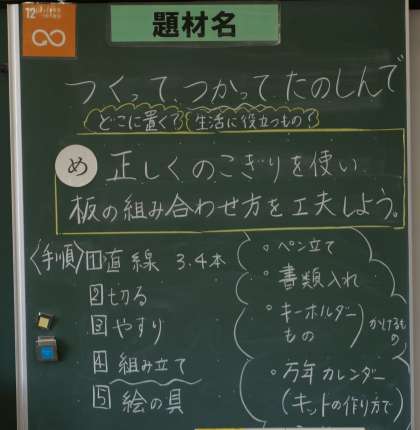 12
題材名
つくって つかって たのしんで
どこに置く? 生活に役立つもの?
め 正しくのこぎりを使い
板の組み合わせ方を工夫しよう。
〈手順〉 1 直線 3.4本
2 切る
3 やすり
4 組み立て
5 絵の具
。ペン立て
。書類入れ
。キーホルダー
もの
かけるもの
。万年カレンダー
(キットの作り方で)